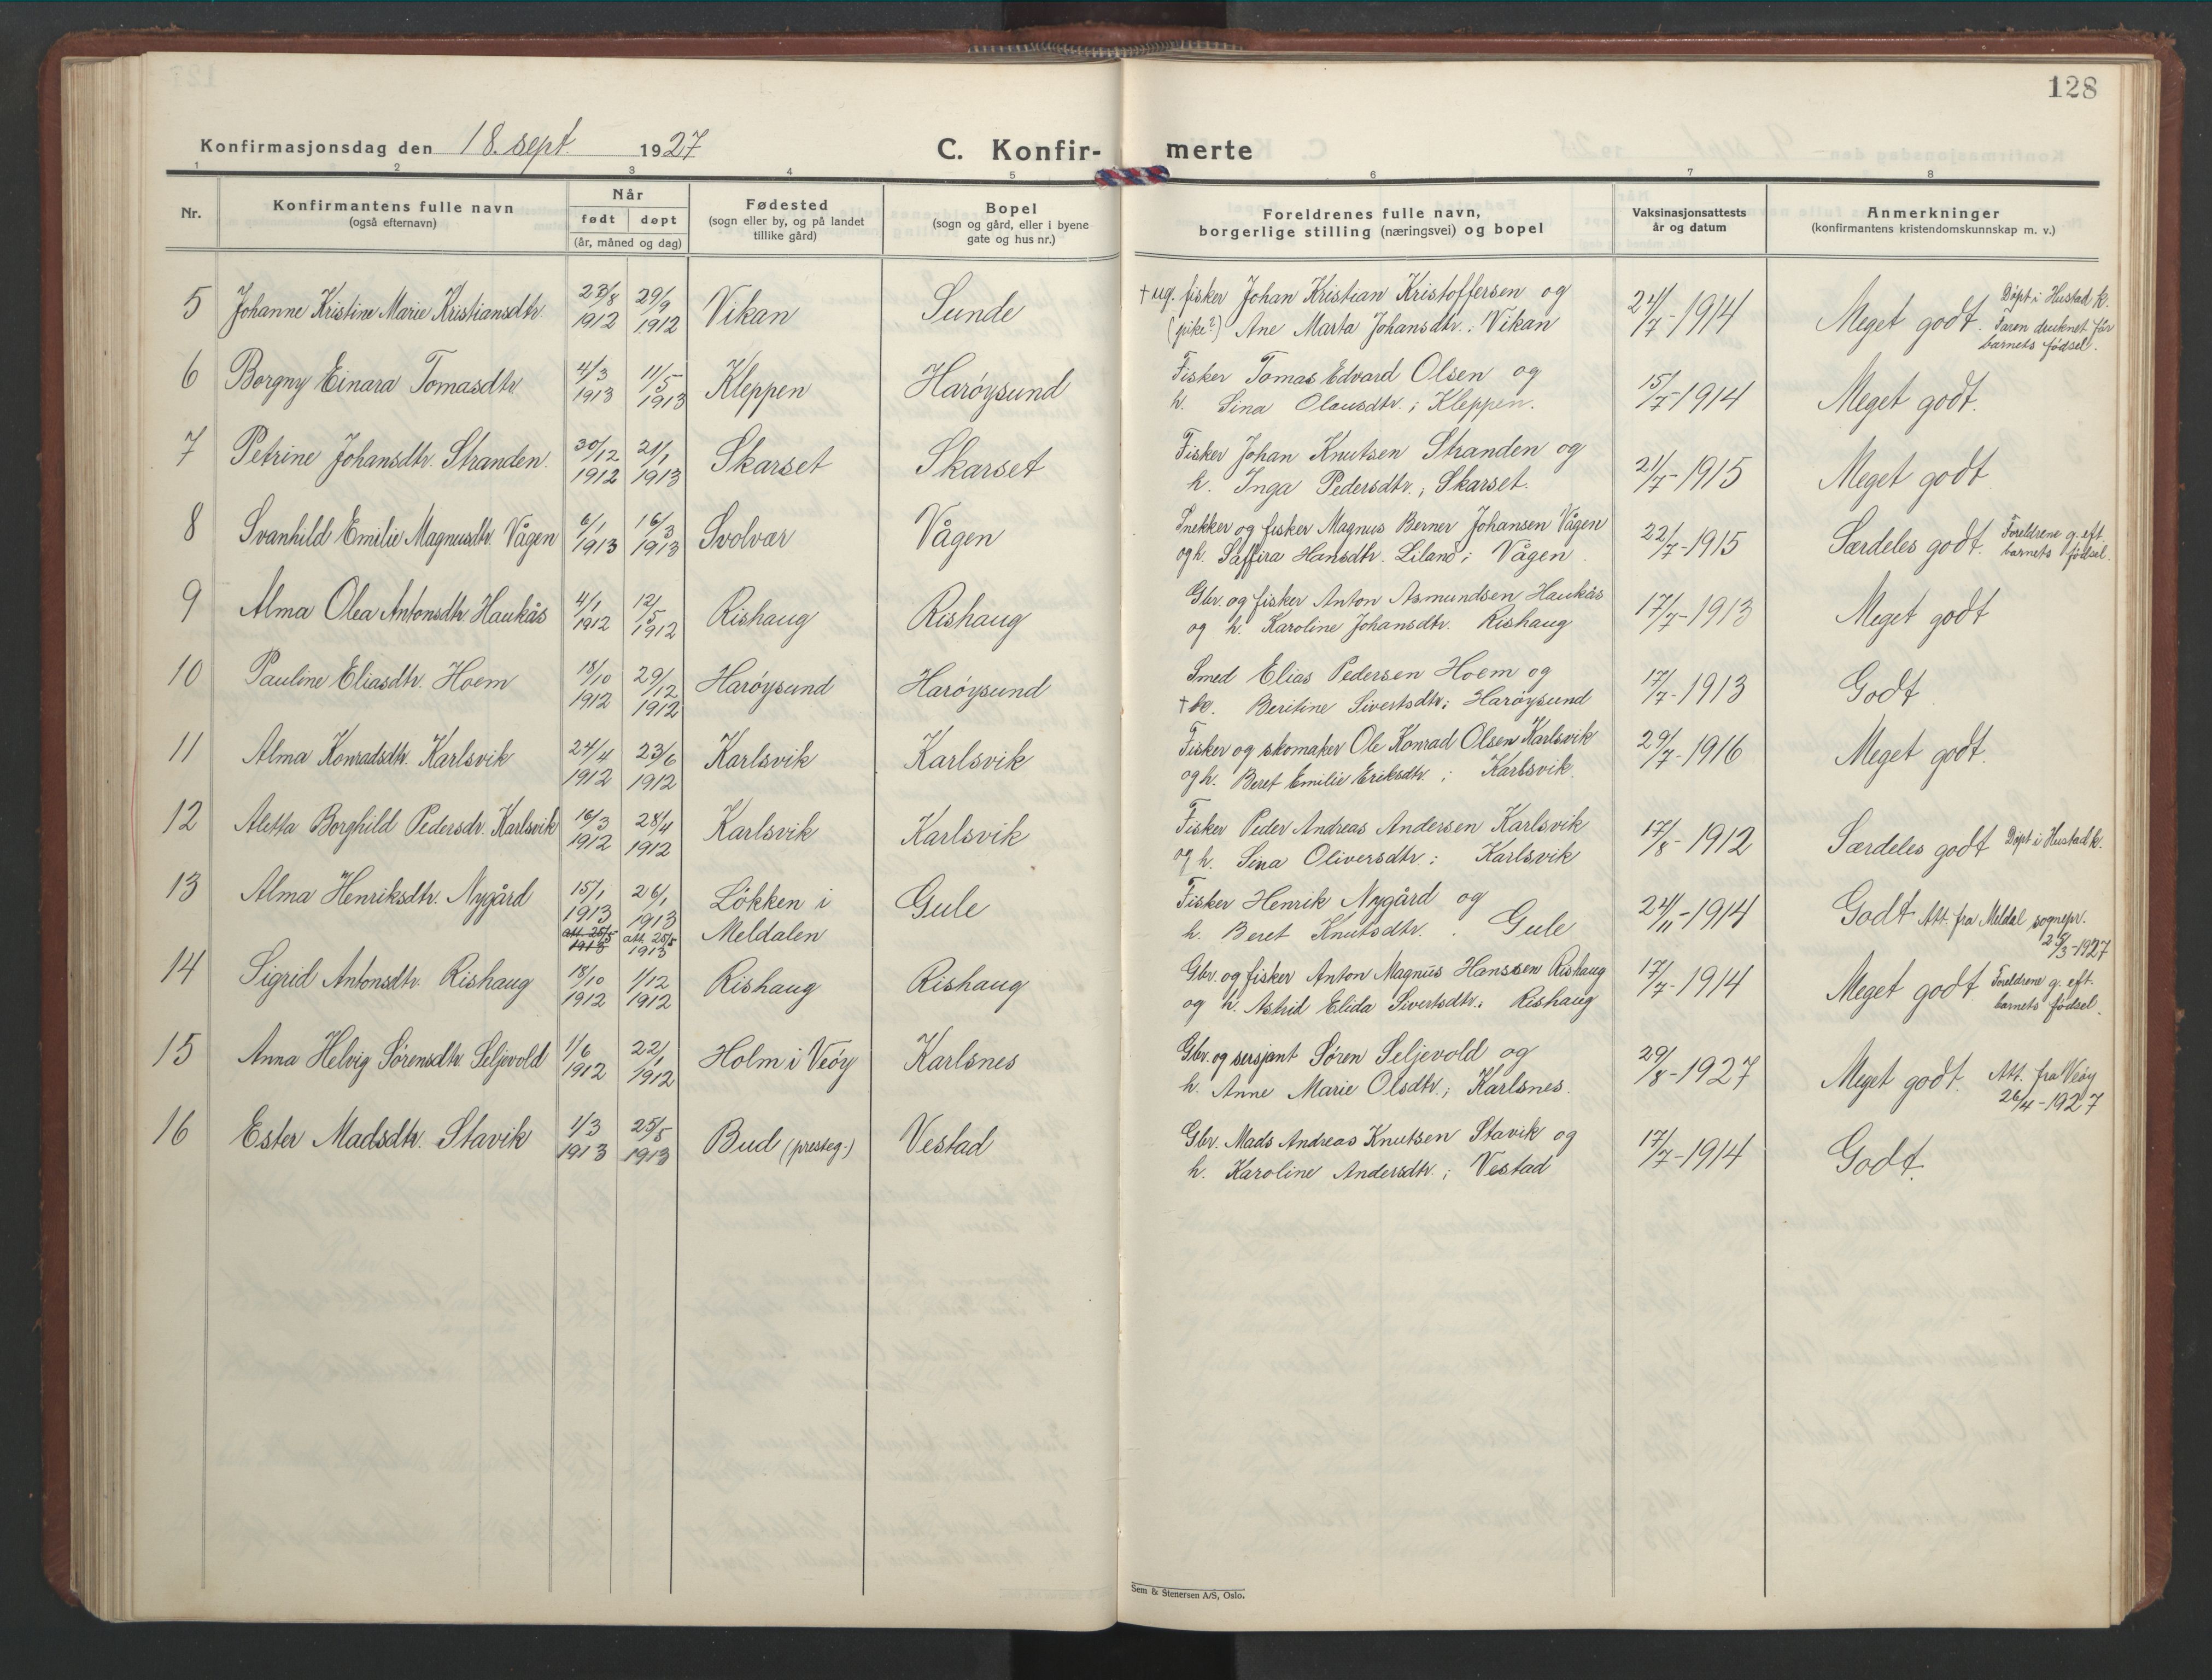 128
Konfirmasjonsdag den 18. sept. 1927
C. Konfir-merte
1 2 3 4 5 6 7 8
Nr.
Konfirmantens fulle navn
(også efternavn)
Når
født døpt
(år, måned og dag)
Fødested
(sogn eller by, og på landet
tillike gård)
Bopel
(sogn og gård, eller i byene
gate og hus nr.)
Foreldrenes fulle navn,
borgerlige stilling (næringsvei) og bopel
Vaksinasjonsattests
år og datum
Anmerkninger
(konfirmantens kristendomskunnskap m. v.)
5 Johanne Kristine Marie Kristiansdtr. 27/8 1912 29/9 1912 Vikan Sunde
† ug. fisker Johan Kristian Kristoffersen og
(pike?) Ane Marta Johansdtr.: Vikan
24/7-1914 Meget godt. Døpt i Hustad k.
Faren druknet før
barnets fødsel.
6 Borgny Einara Tomasdtr. 4/3 1913 11/5 1913 Kleppen Harøysund
Fisker Tomas Edvard Olsen og
h. Sina Olausdtr.; Kleppen.
15/7-1914 Meget godt.
7 Petrine Johansdtr. Stranden. 30/12 1912 21/1 1913 Skarset Skarset
Fisker Johan Knutsen Stranden og
h. Inga Pedersdtr.; Skarset.
21/7-1915 Meget godt
8 Svanhild Emilie Magnusdtr. Vågen 6/1 1913 16/3 1913 Svolvær Vågen
Snekker og fisker Magnus Berner Johansen Vågen
og h. Saffira Hansdtr. Liland; Vågen.
22/7-1915 Særdeles godt. Foreldrene g. eft.
barnets fødsel.
9 Alma Olea Antonsdtr. Haukås 4/1 1912 12/5 1912 Rishaug Rishaug
Gbr. og fisker Anton Asmundsen Haukås
og h. Karoline Johansdtr. Rishaug
17/7-1913 Meget godt
10 Pauline Eliasdtr. Hoem 18/10 1912 29/12 1912 Harøysund Harøysund
Smed Elias Pedersen Hoem og
† h. Beritine Sivertsdtr; Harøysund
17/7-1913 Godt
11 Alma Konradsdtr. Karlsvik 24/4 1912 23/6 1912 Karlsvik Karlsvik
Fisker og skomaker Ole Konrad Olsen Karlsvik
og h. Beret Emilie Eriksdtr. ; Karlsvik.
29/7-1916 Meget godt.
12 Aletta Borghild Pedersdr. Karlsvik 16/3 1912 28/4 1912 Karlsvik Karlsvik
Fisker Peder Andreas Andersen Karlsvik
og h. Sina Oliversdtr: Karlsvik
17/8-1912 Særdeles godt Døpt i Hustad k.
13 Alma Henriksdtr. Nygård 15/1 1913 26/1 1913 Løkken i Gule
att. 25/5 1913 att. 25/5 1913 Meldalen
Fisker Henrik Nygård og
h. Beret Knutsdtr. . Gule
24/11-1914 Godt Att. fra Meldal sognepr.
25/3-1927
14 Sigrid Antonsdtr. Rishaug 18/10 1912 1/12 1912 Rishaug Rishaug
Gbr. og fisker Anton Magnus Hanssen Rishaug
og h. Astrid Elida Sivertsdtr.: Rishaug
17/7-1914 Meget godt Foreldrene g. eft.
barnets fødsel.
15 Anna Helvig Sørensdtr. Seljevold 1/6 1912 22/1 1912 Holm i Veøy Karlsnes
Gbr. og sersjant Søren Seljevold og
h. Anne Marie Olsdtr.; Karlsnes.
29/8-1927 Meget godt. Att. fra Veøy
26/4-1927
16 Ester Madsdtr. Stavik 1/3 1913 25/5 1913 Bud (presteg.) Vestad
Gbr. Mads Andreas Knutsen Stavik og
h. Karoline Andersdtr.; Vestad
17/7-1914 Godt.
Sem & Stenersen A/S, Oslo.